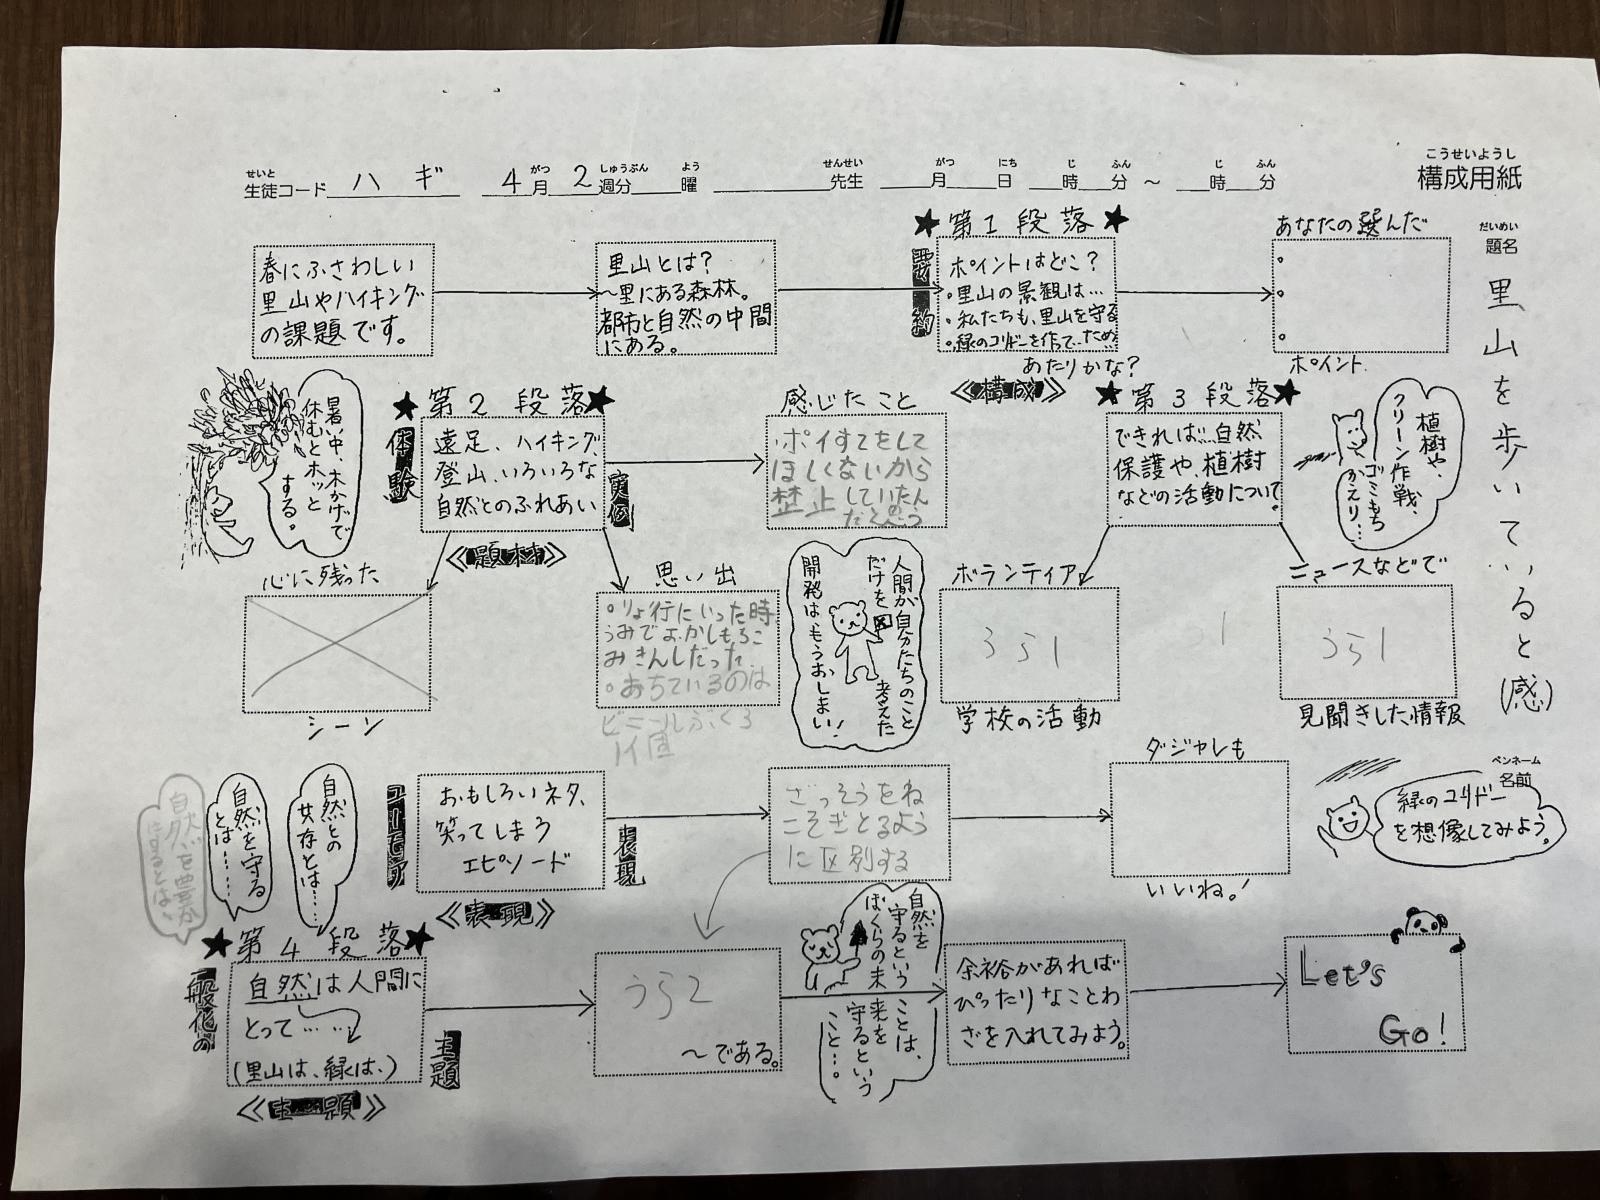 こうせいようし
構成用紙
せいと がつ しゅうぶん よう せんせい がつ にち じ ふん じ ふん
生徒コード ハギ 4月 2週分 曜 先生 月 日 時 分 ～ 時 分
だいめい
題名
里山を歩いていると(感)
ペンネーム
名前
春にふさわしい
里山やハイキング
の課題です。
里山とは？
～里にある森林。
都市と自然の中間
にある。
★第1段落★
要約
ポイントはどこ？
・里山の景観は…
・私たちも、里山を守る
・緑のコリドーを作って…ため
あたりかな？
《構成》
あなたの選んだ
ポイント
暑い中、木かげで
休むとホッと
する。
★第2段落★
体験
遠足、ハイキング、
登山、いろいろな
自然とのふれあい
実例
《題材》
感じたこと
・ポイすてをして
ほしくないから
禁止していたん
だと
心に残った
シーン
思い出
・りょ行にいった時
うみでよ
きんしだった
・おちているのは
ビニールぶくろ
★第3段落★
できれば…自然
保護や、植樹
などの活動について。
植樹や、
クリーン作戦、
ゴミもち
かえり…
人間が自分たちのこと
だけを考えた
開発はもうおしまい！
ボランティア
うら1
学校の活動
ニュースなどで
うら1
見聞きした情報
ユーモア
おもしろいネタ、
笑ってしまう
エピソード
表現
《表現》
ざっそうをね
こそぎとるよう
に区別する
ダジャレも
いいね。！
緑のコリドー
を想像してみよう。
自然を守る
とは……
自然との
共存とは……
★第4段落★
一般化の
主題
自然は人間に
とって……
(里山は、緑は、)
《主題》
うら2
～である。
自然を
守るという
ことは、
ぼくらの未来を
守るという
こと…。
余裕があれば
ぴったりなことわ
ざを入れてみよう。
Let's
Go！